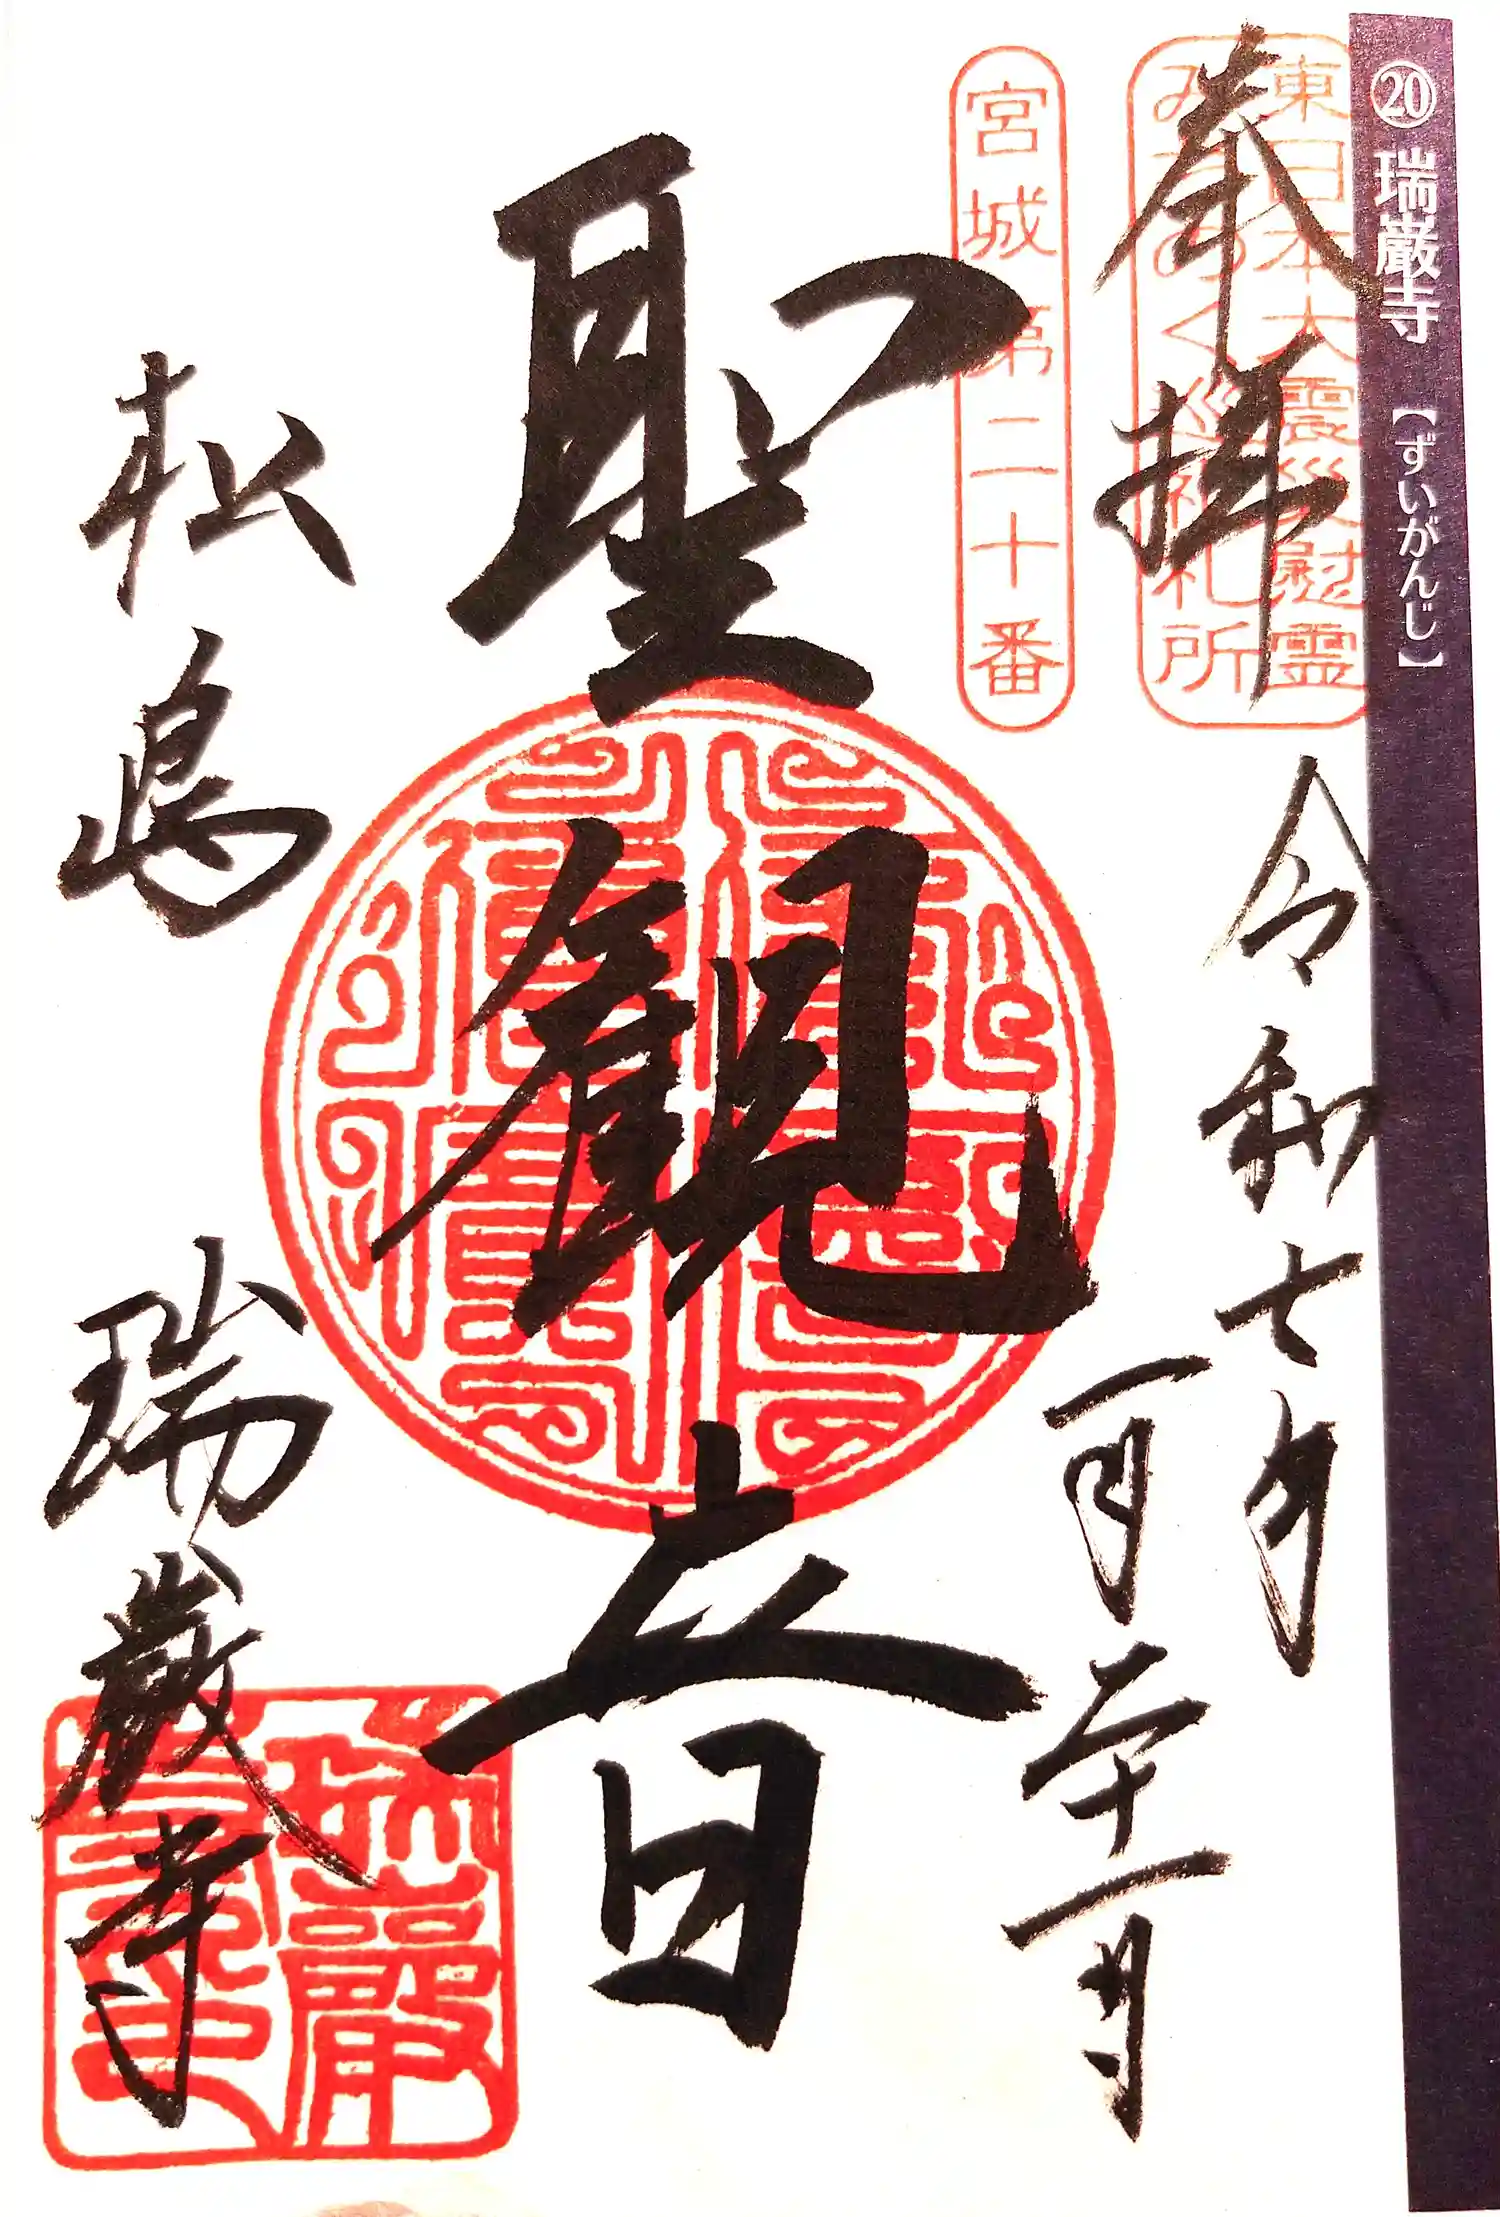 ⑳ 瑞巌寺【ずいがんじ】
東日本大震災慰霊
みちのく巡礼札所
奉拝 令和七年
一月二十一日
宮城第二十番
聖観音
松島 瑞巌寺